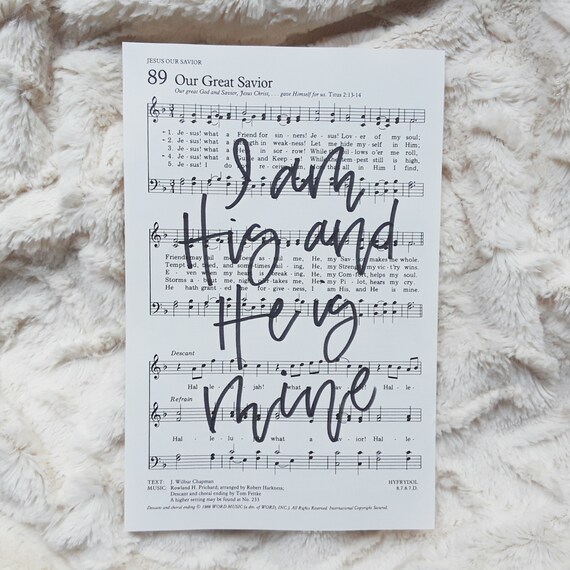 JESUS OUR SAVIOR
89 Our Great Savior
Our great God and Savior, Jesus Christ, . . . gave Himself for us. Titus 2:13-14
1. Je - sus! what a Friend for sin - ners! Je - sus! Lov - er of my soul;
2. Je - sus! what a in weak - ness! Let me hide my - self in Him;
3. Je - sus! what a in sor - row! While o'er me roll,
4. Je - sus! what a Guide and Keep - While tem - pest still is high,
5. Je - sus! I do re - all in Him I find,
I am
His and
He is
mine
Friends may me, foes as - sail me, He, my Sav - makes me whole.
Tempt - ed, tried, and some - times fail - ing, He, my Strength, my vic - t'ry wins.
E - ven when my heart is break - ing, He, my Com - fort, helps my soul.
Storms a - bout me, night o'er - takes me, He, my Pi - lot, hears my cry.
He hath grant - ed for - give - ness, I am His, and He is mine.
Descant
Hal - le - jah! what Hal - le -
Refrain
Hal - le - lu - what a Hal - le -
TEXT: J. Wilbur Chapman
MUSIC: Rowland H. Prichard, arranged by Robert Harkness;
Descant and choral ending by Tom Fettke
A higher setting may be found at No. 253
HYFRYDOL
8.7.8.7.D.
Descant and choral ending © 1986 WORD MUSIC (a div. of WORD, INC.). All Rights Reserved. International Copyright Secured.